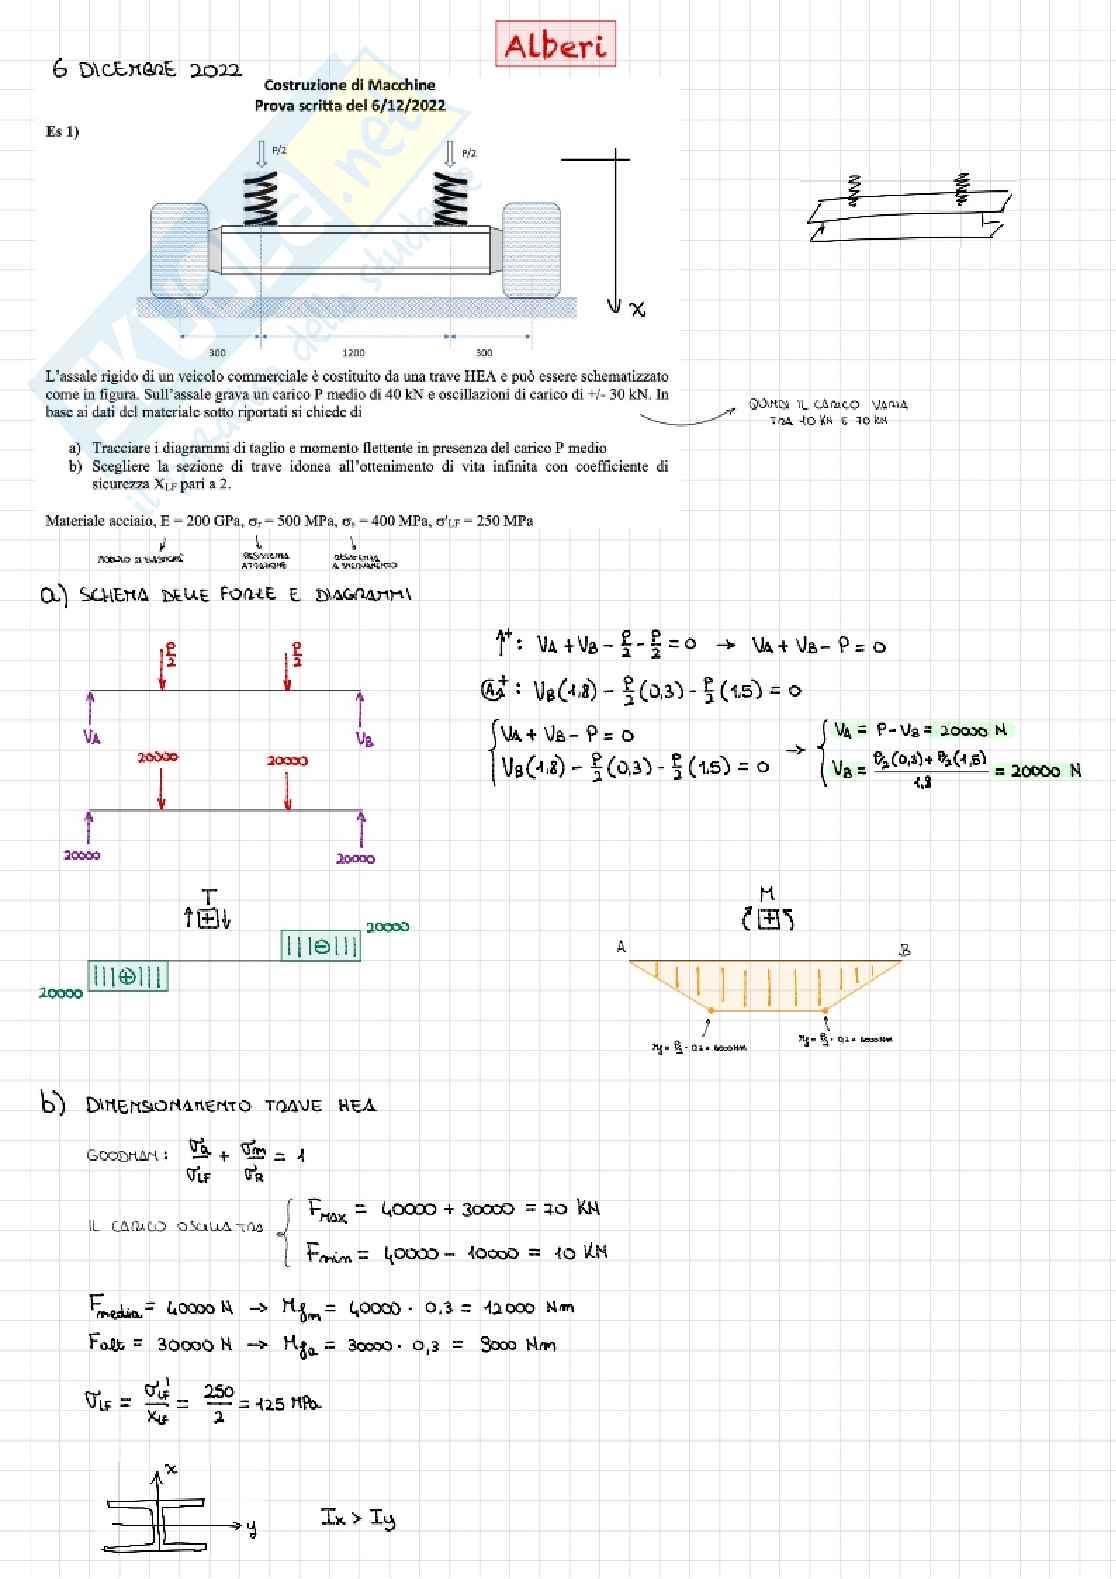 Alberi
6 DICEMBRE 2022
Costruzione di Macchine
Prova scritta del 6/12/2022
Es 1)
P/2
P/2
x
300
1200
300
L'assale rigido di un veicolo commerciale è costituito da una trave HEA e può essere schematizzato
come in figura. Sull'assale grava un carico P medio di 40 kN e oscillazioni di carico di +/- 30 kN. In
base ai dati del materiale sotto riportati si chiede di
QUINDI IL CARICO VARIA
TRA 10 KN E 70 KN
a) Tracciare i diagrammi di taglio e momento flettente in presenza del carico P medio
b) Scegliere la sezione di trave idonea all'ottenimento di vita infinita con coefficiente di
sicurezza X_LF pari a 2.
Materiale acciaio, E = 200 GPa, σr = 500 MPa, σs = 400 MPa, σ'LF = 250 MPa
MODULO DI ELASTICITÀ
RESISTENZA
A TRAZIONE
RESISTENZA
A SNERVAMENTO
a) SCHEMA DELLE FORZE E DIAGRAMMI
P/2
P/2
VA
VB
↑+: VA + VB - P/2 - P/2 = 0 → VA + VB - P = 0
A+: VB(1,8) - P/2(0,3) - P/2(1,5) = 0
VA + VB - P = 0
VB(1,8) - P/2(0,3) - P/2(1,5) = 0
→ VA = P - VB = 20000 N
VB = P/2(0,3) + P/2(1,5) / 1,8 = 20000 N
20000
20000
20000
20000
T
20000
20000
M
A
B
Mf = P/2 · 0,3 = 6000 Nm
Mf = P/2 · 0,3 = 6000 Nm
b) DIMENSIONAMENTO TRAVE HEA
GOODMAN: σa/σLF + σm/σR = 1
IL CARICO OSCILLA TRA
FMAX = 40000 + 30000 = 70 KN
Fmin = 40000 - 10000 = 10 KN
Fmedia = 40000 N → Mfm = 40000 · 0.3 = 12000 Nm
Falt = 30000 N → Mfa = 30000 · 0,3 = 9000 Nm
σLF = σ'LF/XLF = 250/2 = 125 MPa
x
y
Ix > Iy